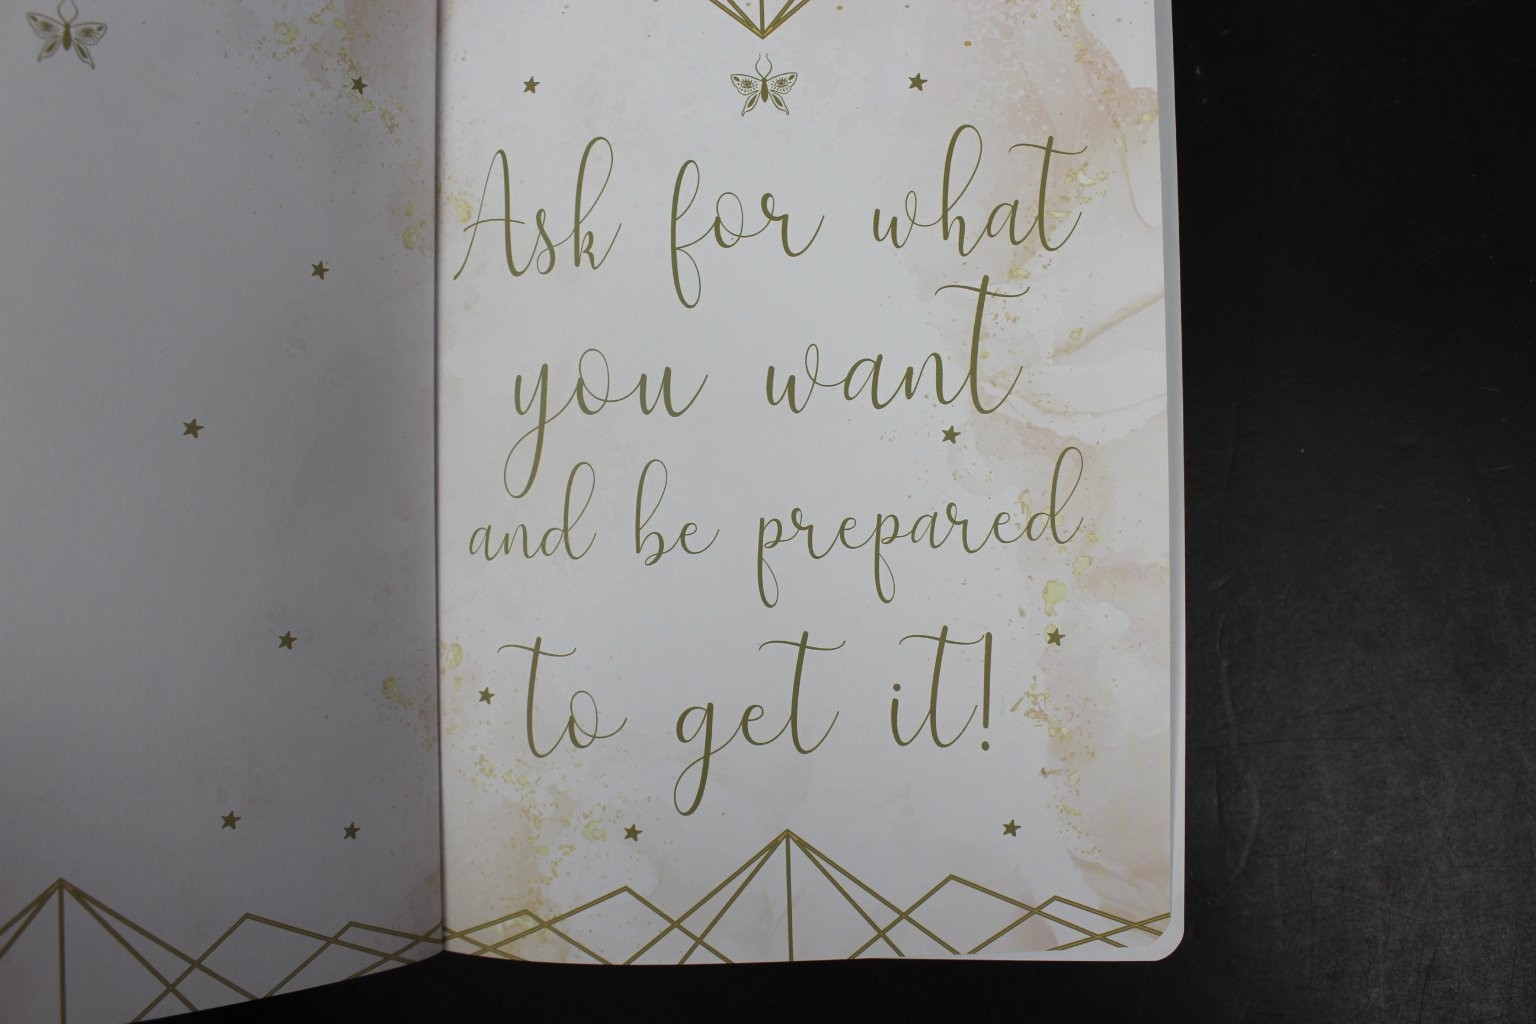 Ask for what
you want
and be prepared
to get it!